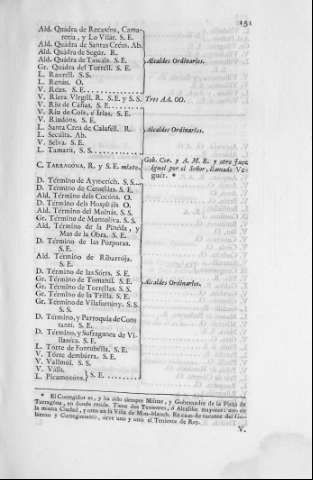 151
Ald. Quadra de Recasens, Cama-
reria, y Lo Vilar. S. E.
Ald. Quadra de Santas Creus. Ab.
Ald. Quadra de Segúr. R.
Ald. Quadra de Tascáls. S. E. Alcaldes Ordinarios.
Gr. Quadra del Torrell. S. E.
L. Raurell. S. S.
L. Renáu. O.
V. Réus. S. E.
V. Riera Virgili. R. S. E. y S. S. Tres A.d. OO.
V. Riu de Cañas. S. E.
V. Riu de Cols, ó Irlas. S. E.
V. Riudóns. S. E.
L. Santa Creu de Calafell. R. Alcaldes Ordinarios.
L. Secuita. Ab.
V. Selva. S. E.
L. Tamarit. S. S.
Gob. Cor. y A. M. R. y otro
C. TARRAGONA, R. y S. E. mixto. igual por el Señor, llamado Ve-
guér. *
D. Término de Aymerich. S. S.
D. Término de Centellas. S. E.
Ald. Término dels Cocóns. O.
D. Término dels Hospitáls O.
Ald. Término del Molnás. S. S.
Gr. Término de Montoliva. S. S.
Ald. Término de la Pineda, y
Mas de la Obra. S. E.
D. Término de las Porporas.
S. E.
Ald. Término de Riburroja.
S. E.
D. Término de las Sórts. S. E. Alcaldes Ordinarios.
Gr. Término de Tomaníl. S. E.
Gr. Término de Torrellas. S. S.
Gr. Término de la Trilla. S. E.
Gr. Término de Vilafortuny. S. S.
S. S.
D. Término, y Parroquia de Cons
tantí. S. E.
D. Término, y Sufraganea de Vi-
llaseca. S. E.
L. Torre de Fontubélla. S. E.
V. Tórre dembárra. S. E.
V. Vallmól. S. S.
V. Válls.
L. Picamoxóns. } S. E.
* El Corregidor es, y ha sido siempre Militar, y Gobernador de la Plaza de
Tarragona, en donde reside. Tiene dos Tenientes, ó Alcaldes mayores: uno en
la misma Ciudad, y otro en la Villa de Mon-blanch. En caso de vacante del Go-
bierno y Corregimiento, sirve uno y otro el Teniente de Rey.
V.